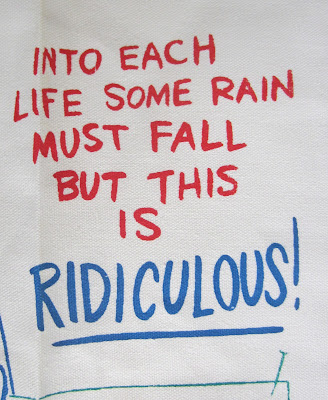 INTO EACH
LIFE SOME RAIN
MUST FALL
BUT THIS
IS
RIDICULOUS!